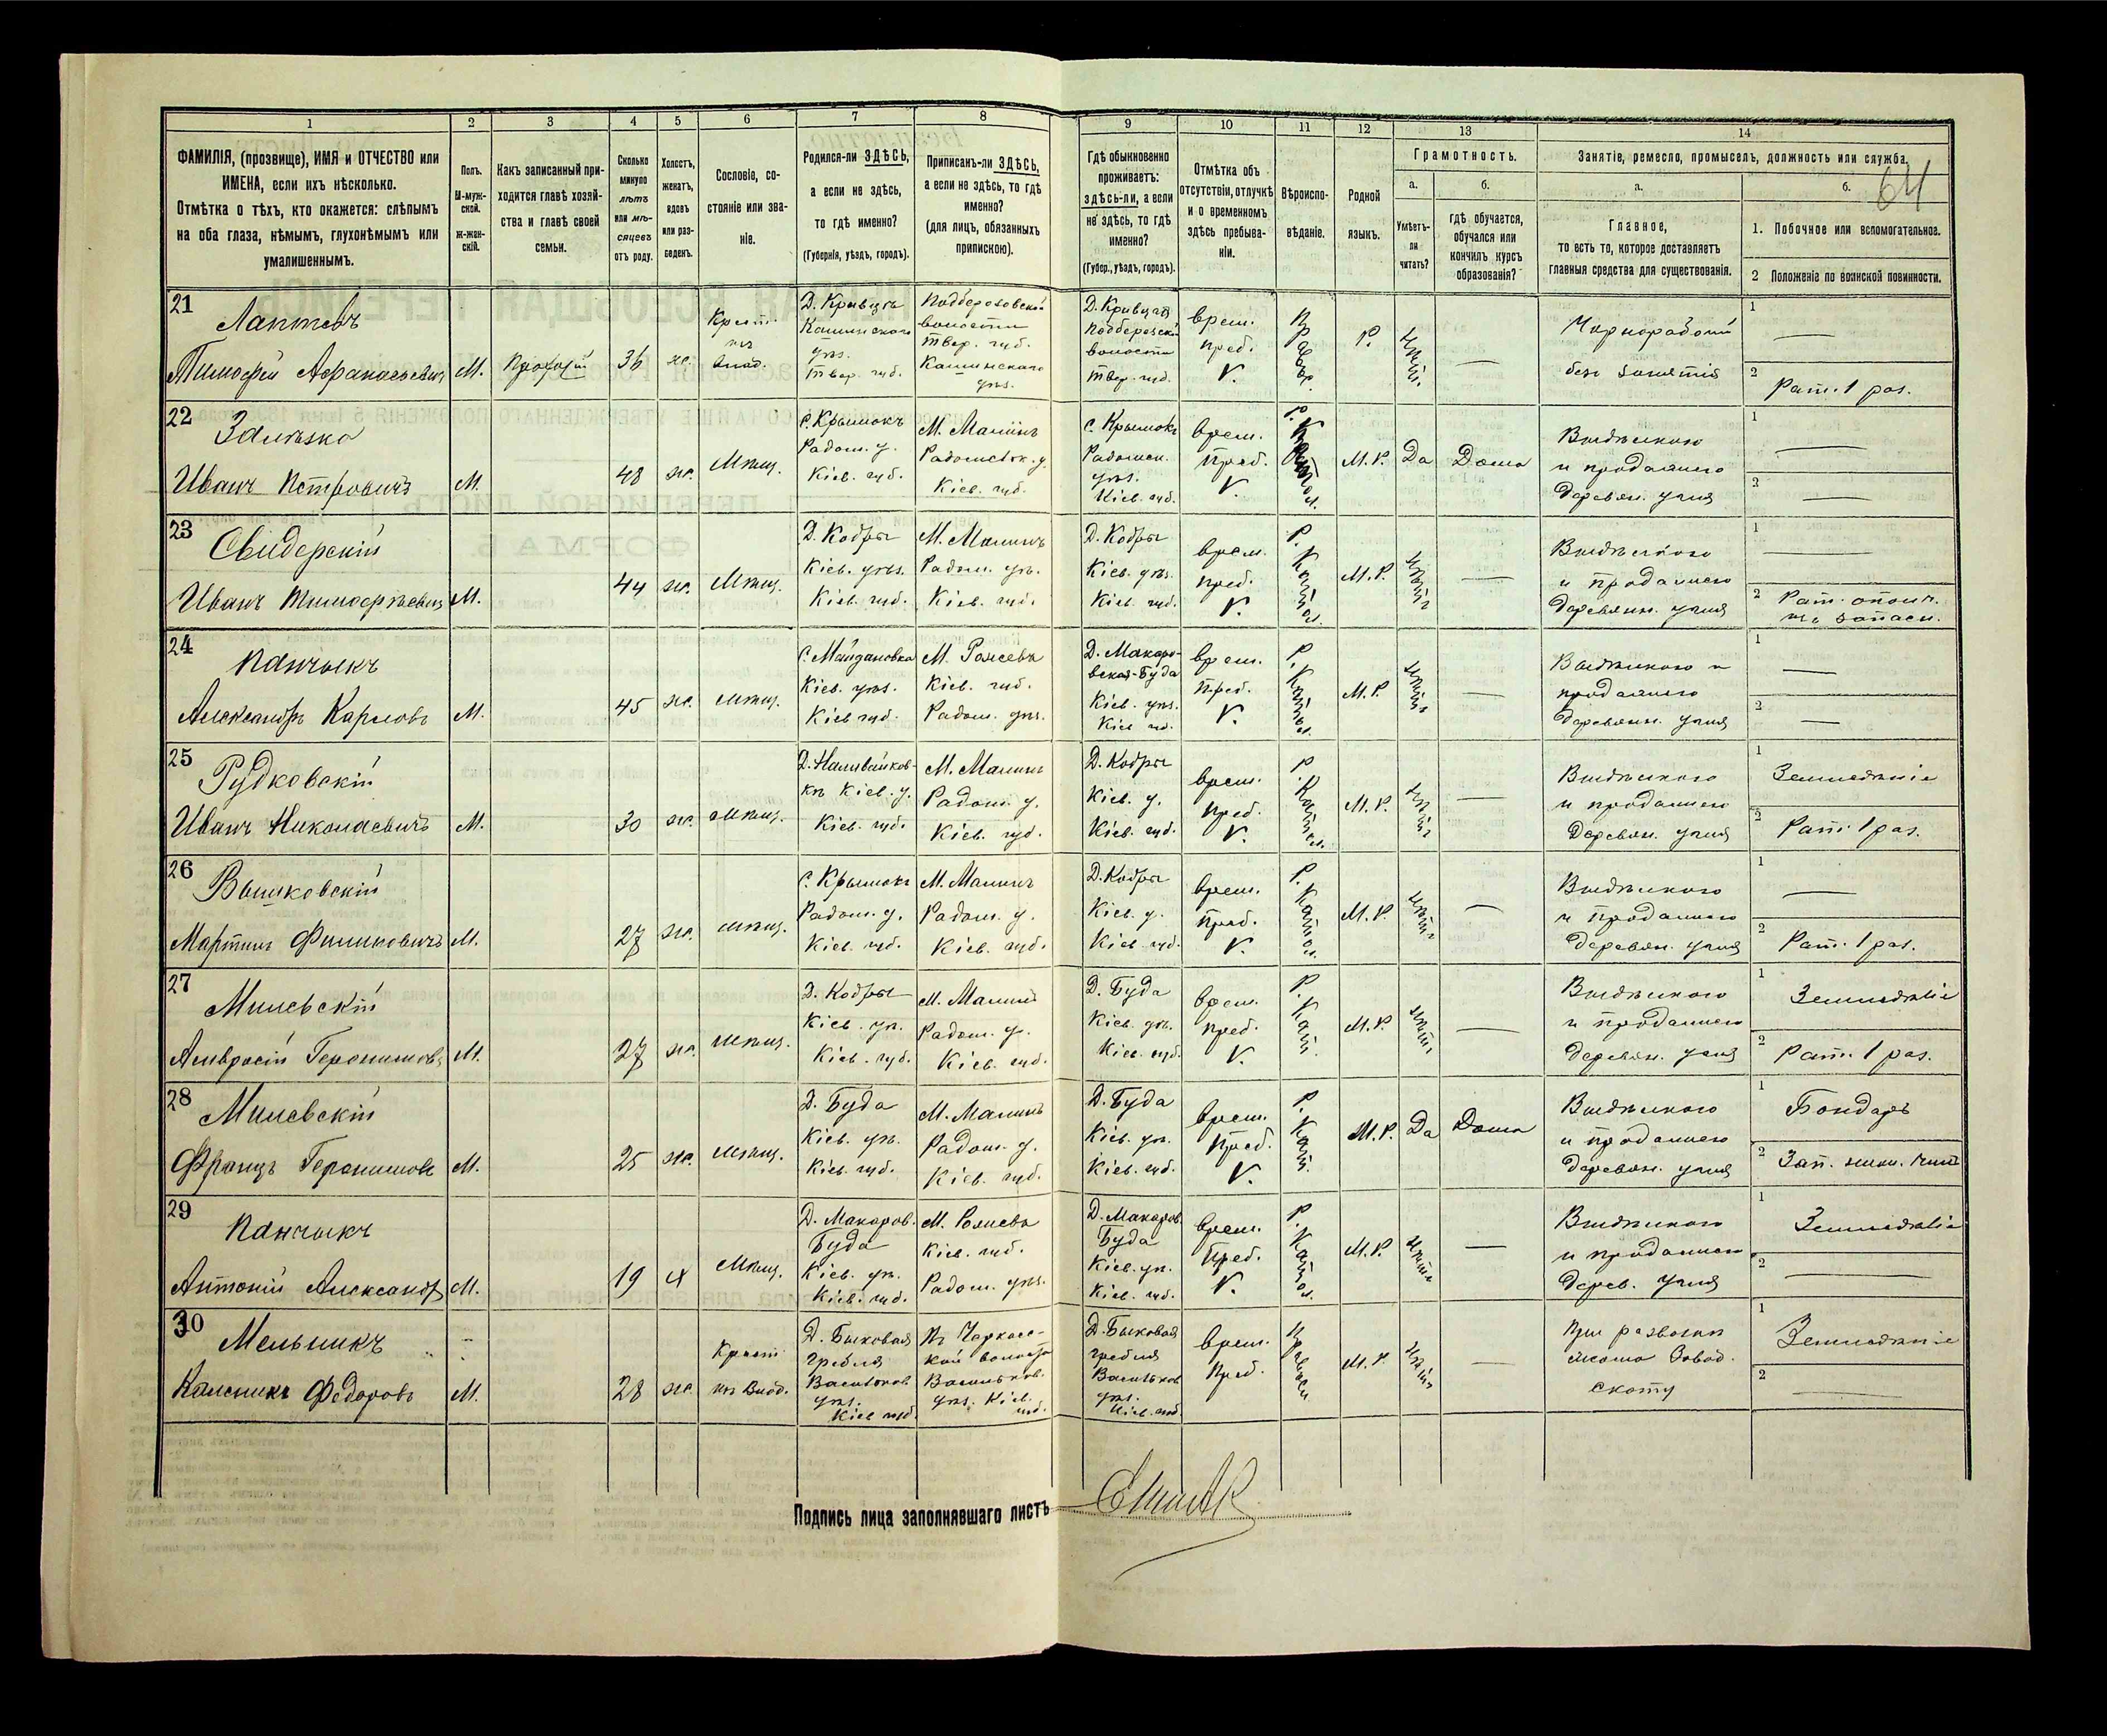 1 2 3 4 5 6 7 8 9 10 11 12 13 14
ФАМИЛІЯ, (прозвище), ИМЯ и ОТЧЕСТВО или
ИМЕНА, если ихъ нѣсколько.
Отмѣтка о тѣхъ, кто окажется: слѣпымъ
на оба глаза, нѣмымъ, глухонѣмымъ или
умалишеннымъ.
Полъ.
М-муж-
ской.
Ж-жен-
скій.
Какъ записанный при-
ходится главѣ хозяй-
ства и главѣ своей
семьи.
Сколько
минуло
лѣтъ
или мѣ-
сяцевъ
отъ роду.
Холостъ,
женатъ,
вдовъ
или раз-
веденъ.
Сословіе, со-
стояніе или зва-
ніе.
Родился-ли ЗДѢСЬ,
а если не здѣсь,
то гдѣ именно?
(Губернія, уѣздъ, городъ).
Приписанъ-ли ЗДѢСЬ,
а если не здѣсь, то гдѣ
именно?
(для лицъ, обязанныхъ
припискою).
Гдѣ обыкновенно
проживаетъ:
здѣсь-ли, а если
не здѣсь, то гдѣ
именно?
(Губер., уѣздъ, городъ).
Отмѣтка объ
отсутствіи, отлучкѣ
и о временномъ
здѣсь пребыва-
ніи.
Вѣроиспо-
вѣданіе.
Родной
языкъ.
Грамотность.
а.
Умѣетъ-
ли
читать?
б.
гдѣ обучается,
обучался или
кончилъ курсъ
образованія?
Занятіе, ремесло, промыселъ, должность или служба.
а.
Главное,
то есть то, которое доставляетъ
главныя средства для существованія.
б.
64
1. Побочное или вспомогательное.
2 Положеніе по воинской повинности.
21
Лаптевъ
Тимофей Афанасьевич
М.
36
ж.
Д. Кривцы
Кашинскаго
уѣз.
Твер. губ.
волости
Твер. губ.
Кашинскаго
уѣз.
Д. Кривцы
волости
Твер. губ.
врем.
преб.
V.
Р.
Чернорабочій
без занятія
1
2 Рат. 1 раз.
22
Иванъ Петровичъ
М.
48
ж.
Мѣщ.
С. Крымокъ
Радом. у.
Кіев. губ.
М. Малинъ
Радомысл. у.
Кіев. губ.
С. Крымокъ
Радомысл.
уѣз.
Кіев. губ.
врем.
преб.
V.
Р.
М. Р.
Да
Дома
Выдѣлкою
и продажею
деревян.
1
2
23
Свидерскій
Иванъ Тимофѣевич
М.
44
ж.
Мѣщ.
Д. Кодры
Кіев. уѣз.
Кіев. губ.
М. Малинъ
Радом. уѣ.
Кіев. губ.
Д. Кодры
Кіев. уѣз.
Кіев. губ.
врем.
преб.
V.
Р. Катол.
М. Р.
Выдѣлкою
и продажею
деревянн.
1
2 Рат. ополч.
24
Панчыкъ
Александръ Карловъ
М.
45
ж.
мѣщ.
С. Майдановка
Кіев. уѣз.
Кіев губ.
Кіев. губ.
Радом. уѣз.
Д. Макаро-
вская-Буда
Кіев. уѣз.
Кіев губ.
врем.
преб.
V.
Р. Катол.
М. Р.
Выдѣлкою и
продажею
деревянн.
1
2
25
Рудковскій
Иванъ Николаевичъ
М.
30
ж.
мѣщ.
Д. Наливайков-
кѣ Кіев. у.
Кіев. губ.
М. Малинъ
Радом. у.
Кіев. губ.
Д. Кодры
Кіев. у.
Кіев. губ.
врем.
преб.
V.
Р. Катол.
М. Р.
Выдѣлкою
и продажею
деревян.
1 Земледѣліе
2 Рат. 1 раз.
26
Вышковскій
Мартинъ Филиповичъ
М.
27
ж.
мѣщ.
С. Крымокъ
Радом. у.
Кіев. губ.
М. Малинъ
Радом. у.
Кіев. губ.
Д. Кодры
Кіев. у.
Кіев. губ.
врем.
преб.
V.
Р. Катол.
М. Р.
Выдѣлкою
и продажею
деревян.
1
2 Рат. 1 раз.
27
Милевскій
Амвросій Геронимовъ
М.
27
ж.
мѣщ.
Д. Кодры
Кіев. уѣ.
Кіев. губ.
М. Малинъ
Радом. у.
Кіев. губ.
Д. Буда
Кіев. уѣ.
Кіев. губ.
врем.
преб.
V.
Р. Кат.
М. Р.
Выдѣлкою
и продажею
деревян.
1 Земледѣліе
2 Рат. 1 раз.
28
Милевскій
Францъ Геронимовъ
М.
25
ж.
мѣщ.
Д. Буда
Кіев. уѣ.
Кіев. губ.
М. Малинъ
Радом. у.
Кіев. губ.
Д. Буда
Кіев. уѣ.
Кіев. губ.
врем.
преб.
V.
Р. Кат.
М. Р.
Да
Дома
Выдѣлкою
и продажею
деревян.
1 Бондарь
2 Зап. нижн. чинъ
29
Панчыкъ
Антоній Александр
М.
19
х
Мѣщ.
Д. Макаров.
Буда
Кіев. уѣ.
Кіев. губ.
Кіев. губ.
Радом. уѣз.
Д. Макаров.
Буда
Кіев. уѣ.
Кіев. губ.
врем.
преб.
V.
Р. Катол.
М. Р.
Выдѣлкою
и продажею
дерев.
1 Земледѣліе
2
30
Мельникъ
Калѣникъ Федоровъ
М.
28
ж.
Крест.
Д. Быковая
гребля
Васильков.
уѣз.
Кіев губ.
Васильков.
уѣз. Кіев.
губ.
Д. Быковая
гребля
Васильков
уѣз.
Кіев. губ.
врем.
преб.
М. Р.
скоту
1 Земледѣліе
2
Подпись лица заполнявшаго листъ